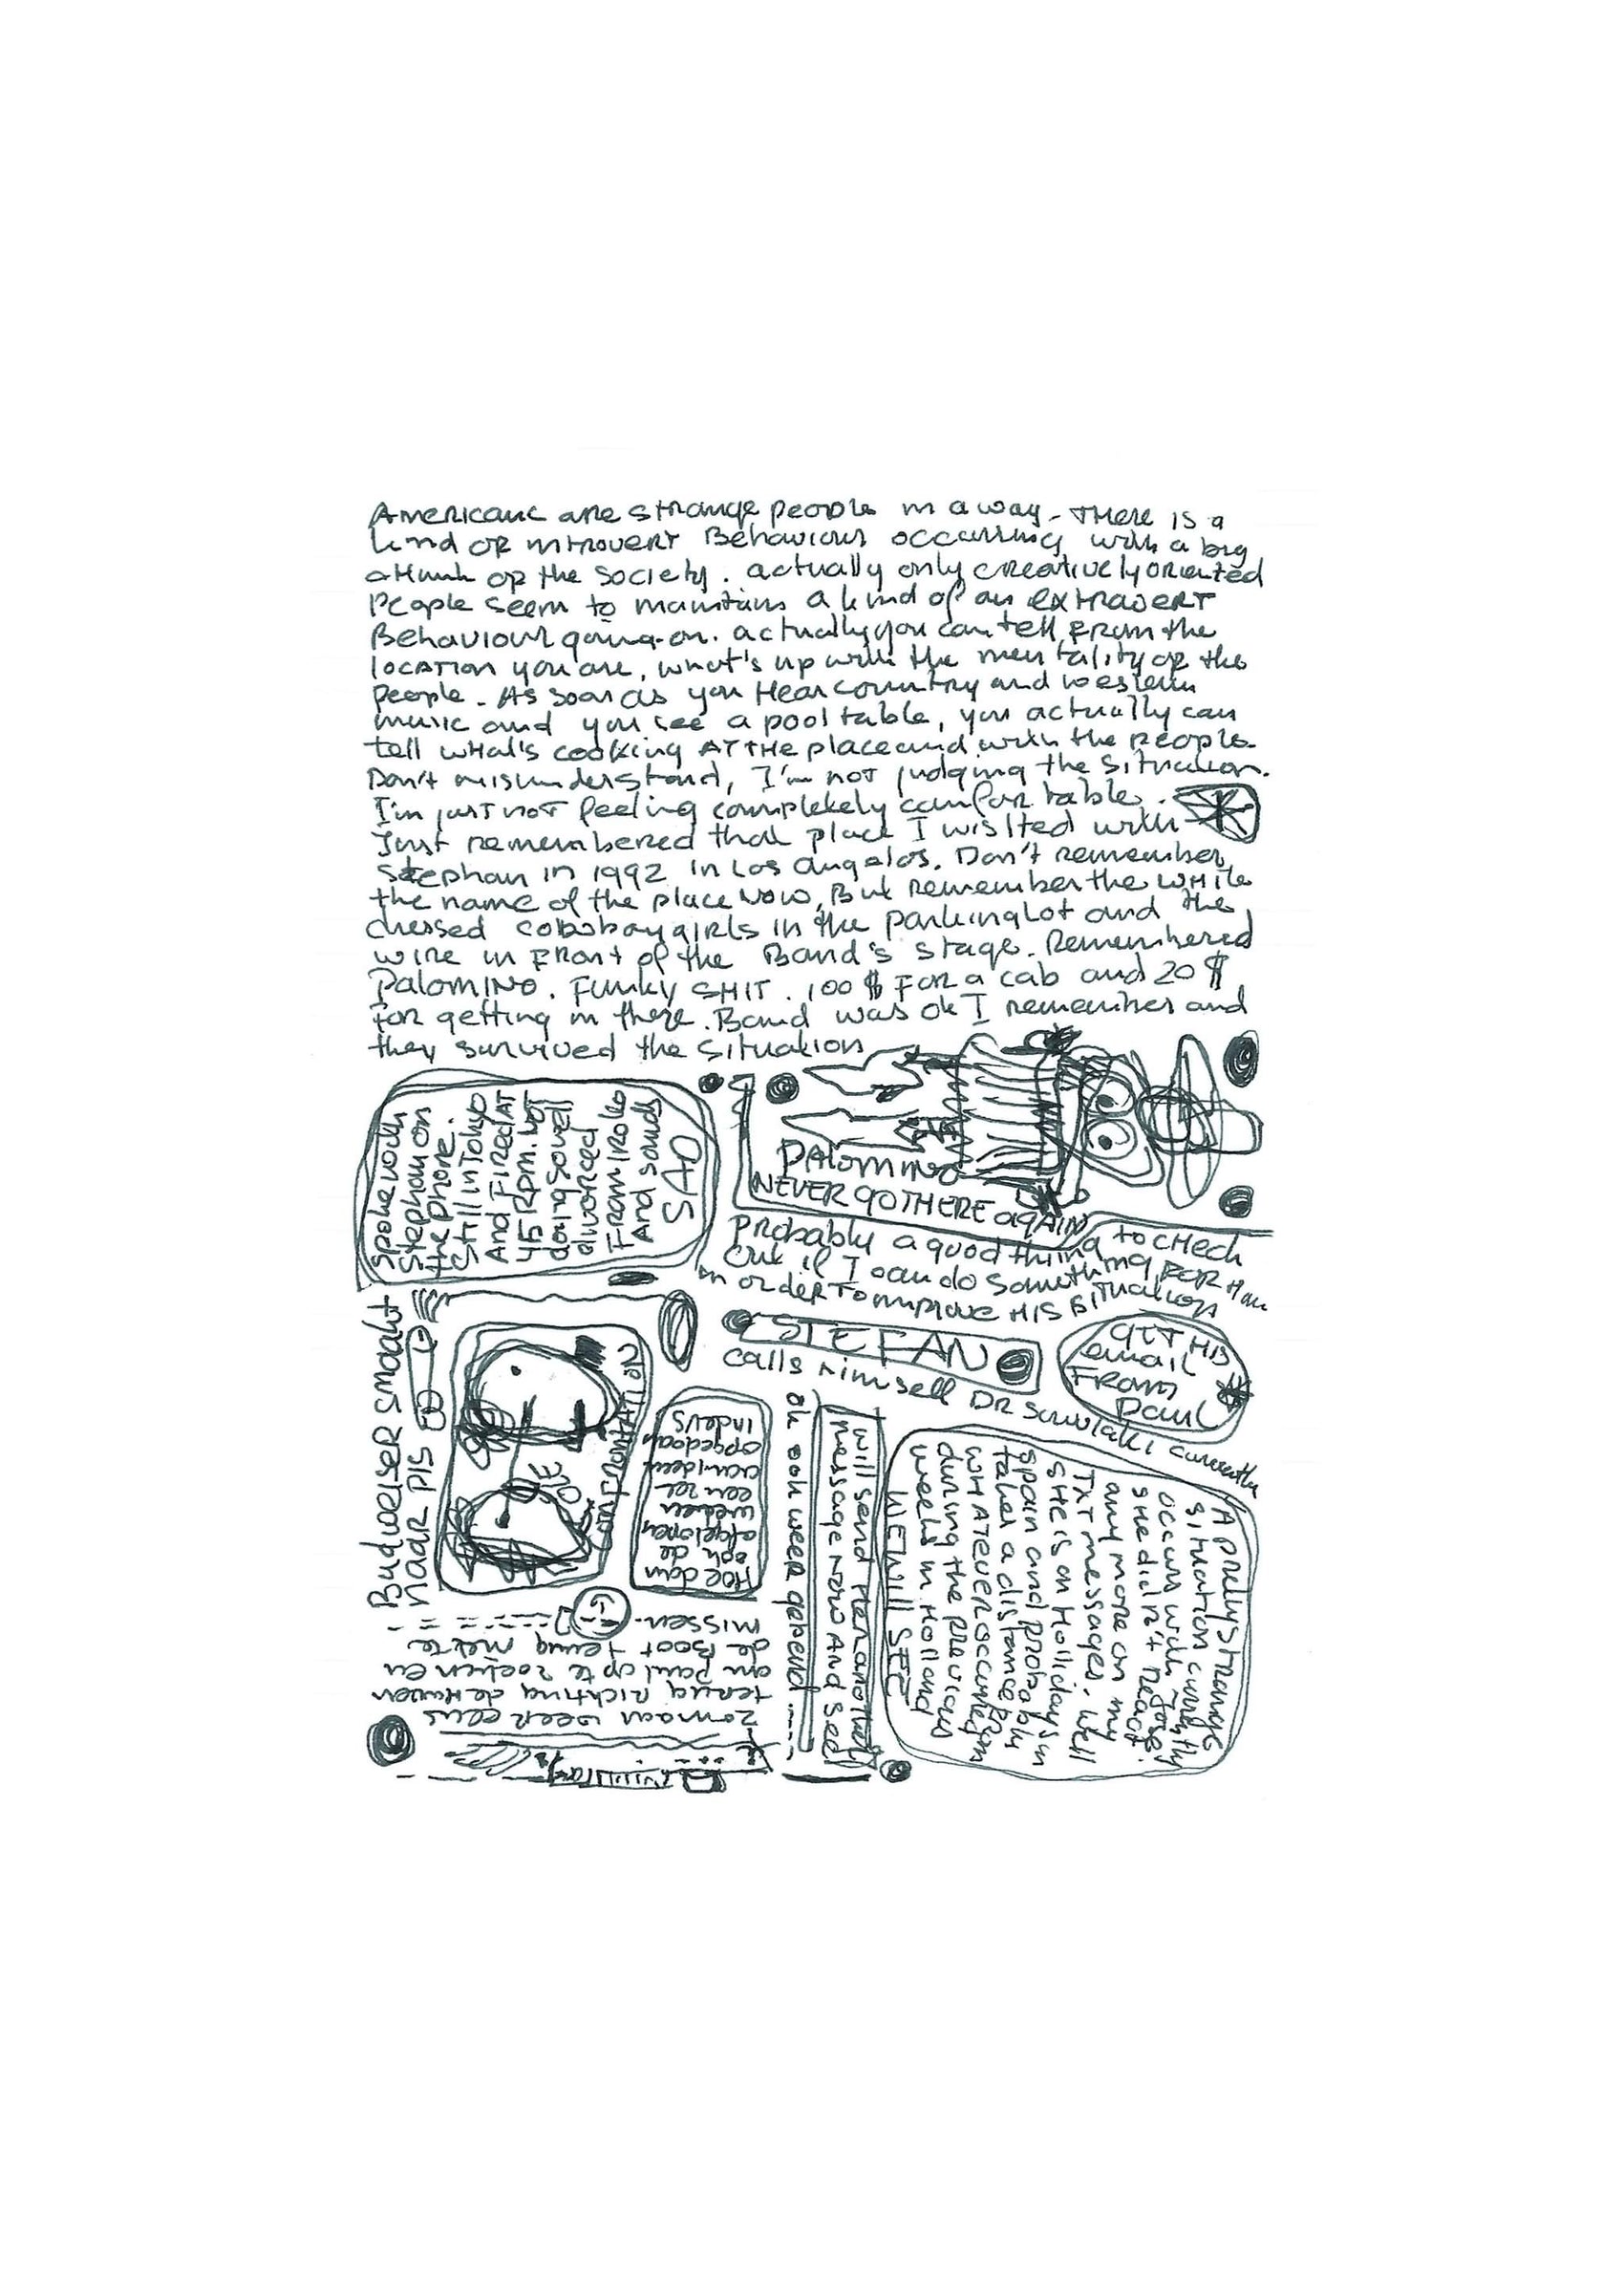 Americans are strange people in a way. There is a
kind of introvert behaviour occurring with a big
chunk of the society. actually only creatively oriented
people seem to maintain a kind of an extravert
behaviour going-on. actually you can tell from the
location you are, what's up with the mentality of the
people. As soon as you hear country and western
music and you see a pool table, you actually can
tell what's cooking at the place and with the people.
Don't misunderstand, I'm not judging the situation.
I'm just not feeling completely comfortable.
Just remembered that place I visited with
Stephan in 1992 in Los Angelos. Don't remember
the name of the place now, but remember the white
dressed cowboygirls in the parkinglot and the
wire in front of the band's stage. Remembered
Palomino. Funky shit. 100 $ for a cab and 20 $
for getting in there. Band was ok I remember and
they survived the situation
Spoke with
Stephan on
the phone.
Still in Tokyo
And fired at
45 RPM. Not
doing so well
divorced
from
And sounds
SAD
Palomino
NEVER GO THERE AGAIN
Probably a good thing to check
out if I can do something for him
in order to improve his situation
STEFAN
calls himself DR currently
GOT HIS
email
From
Paul
Budweiser smaakt
naar pis
CONFRONTATION
Hoe dan
ook de
afgelopen
weken
een zee
van ideeën
opgedaan
Indeüs
oh ook weer gebeurd.....
I will send her another
message now and see
A pretty strange
situation currently
occurs with José.
She didn't react
anymore on my
TXT messages. Well
she is on Holliday in
Spain and probably
takes a distance from
whatever occurred
during the previous
weeks in Holland
WE WILL SEE
Zo maar weer eens
terug richting de haven
om Paul op te zoeken en
de boot terug niet te
missen.